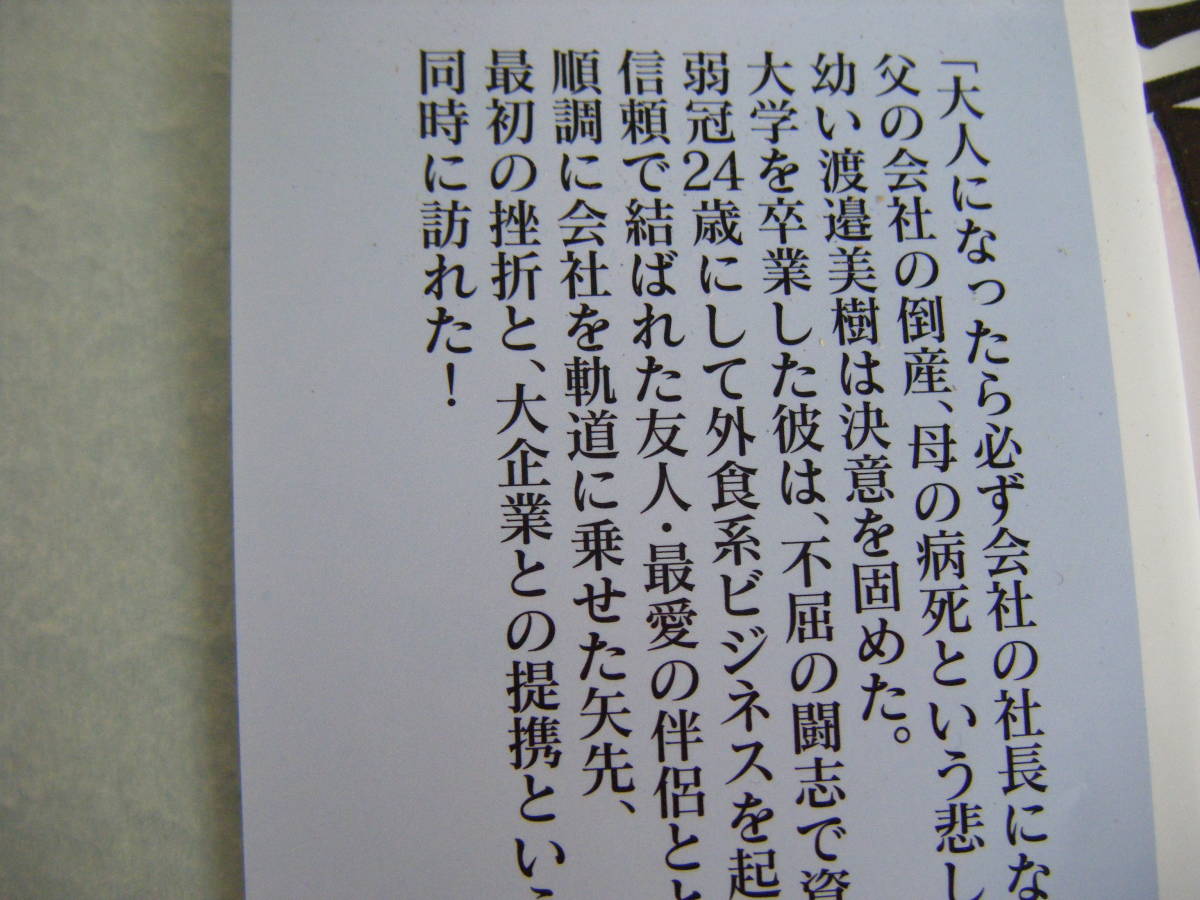 「大人になったら必ず会社の社長にな
父の会社の倒産、母の病死という悲し
幼い渡邉美樹は決意を固めた。
大学を卒業した彼は、不屈の闘志で資
弱冠24歳にして外食系ビジネスを起
信頼で結ばれた友人・最愛の伴侶とと
順調に会社を軌道に乗せた矢先、
最初の挫折と、大企業との提携とい
同時に訪れた!